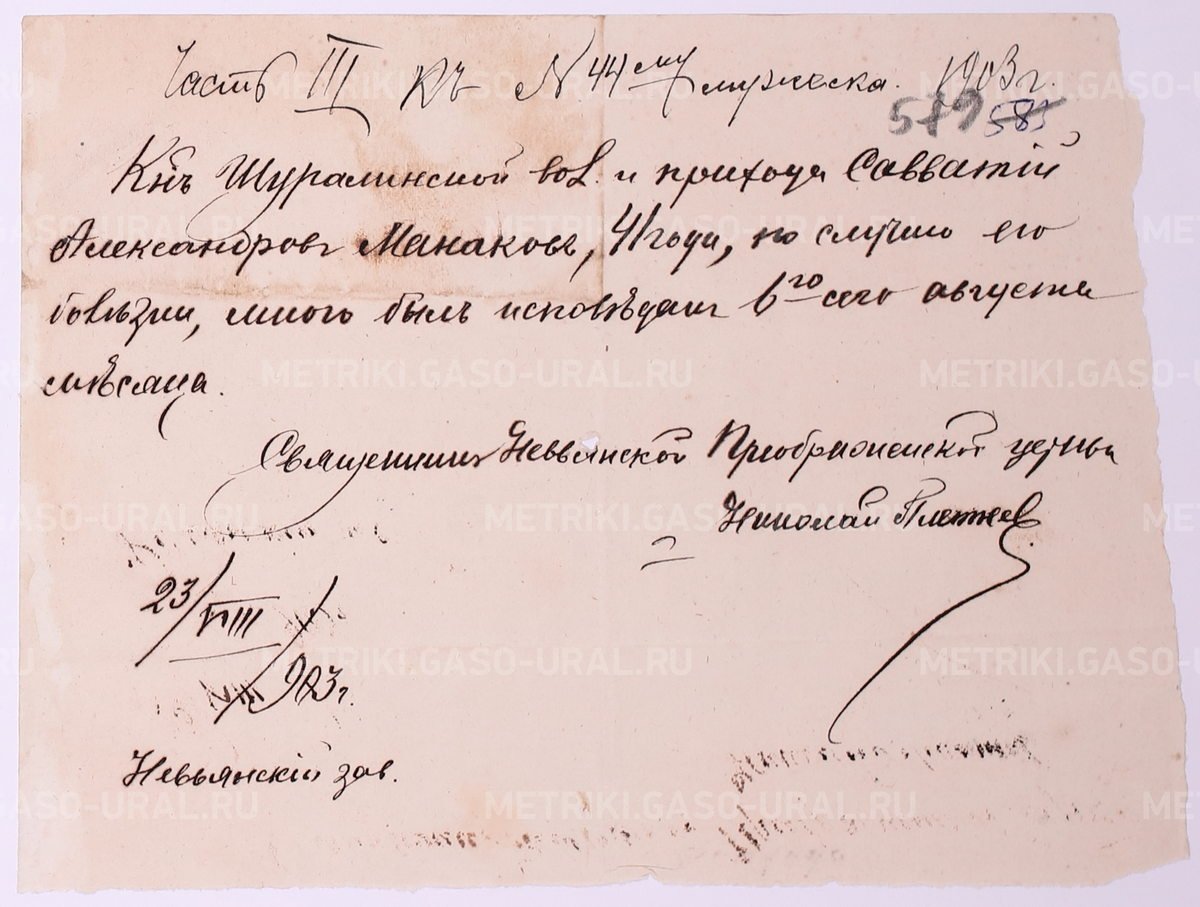 Часть III къ N 44му мужеска. 1903 г.
579 583
Кнъ Шуралинской вол. и прихода Савватій
Александровъ Манаковъ, 41 года, по случаю его
болѣзни, мною былъ исповѣданъ 6го сего августа
мѣсяца.
Священникъ Невьянской Преображенской церкви
Николай Плотнев
23/VIII 903 г.
Невьянскій зав.
METRIKI.GASO-URAL.RU